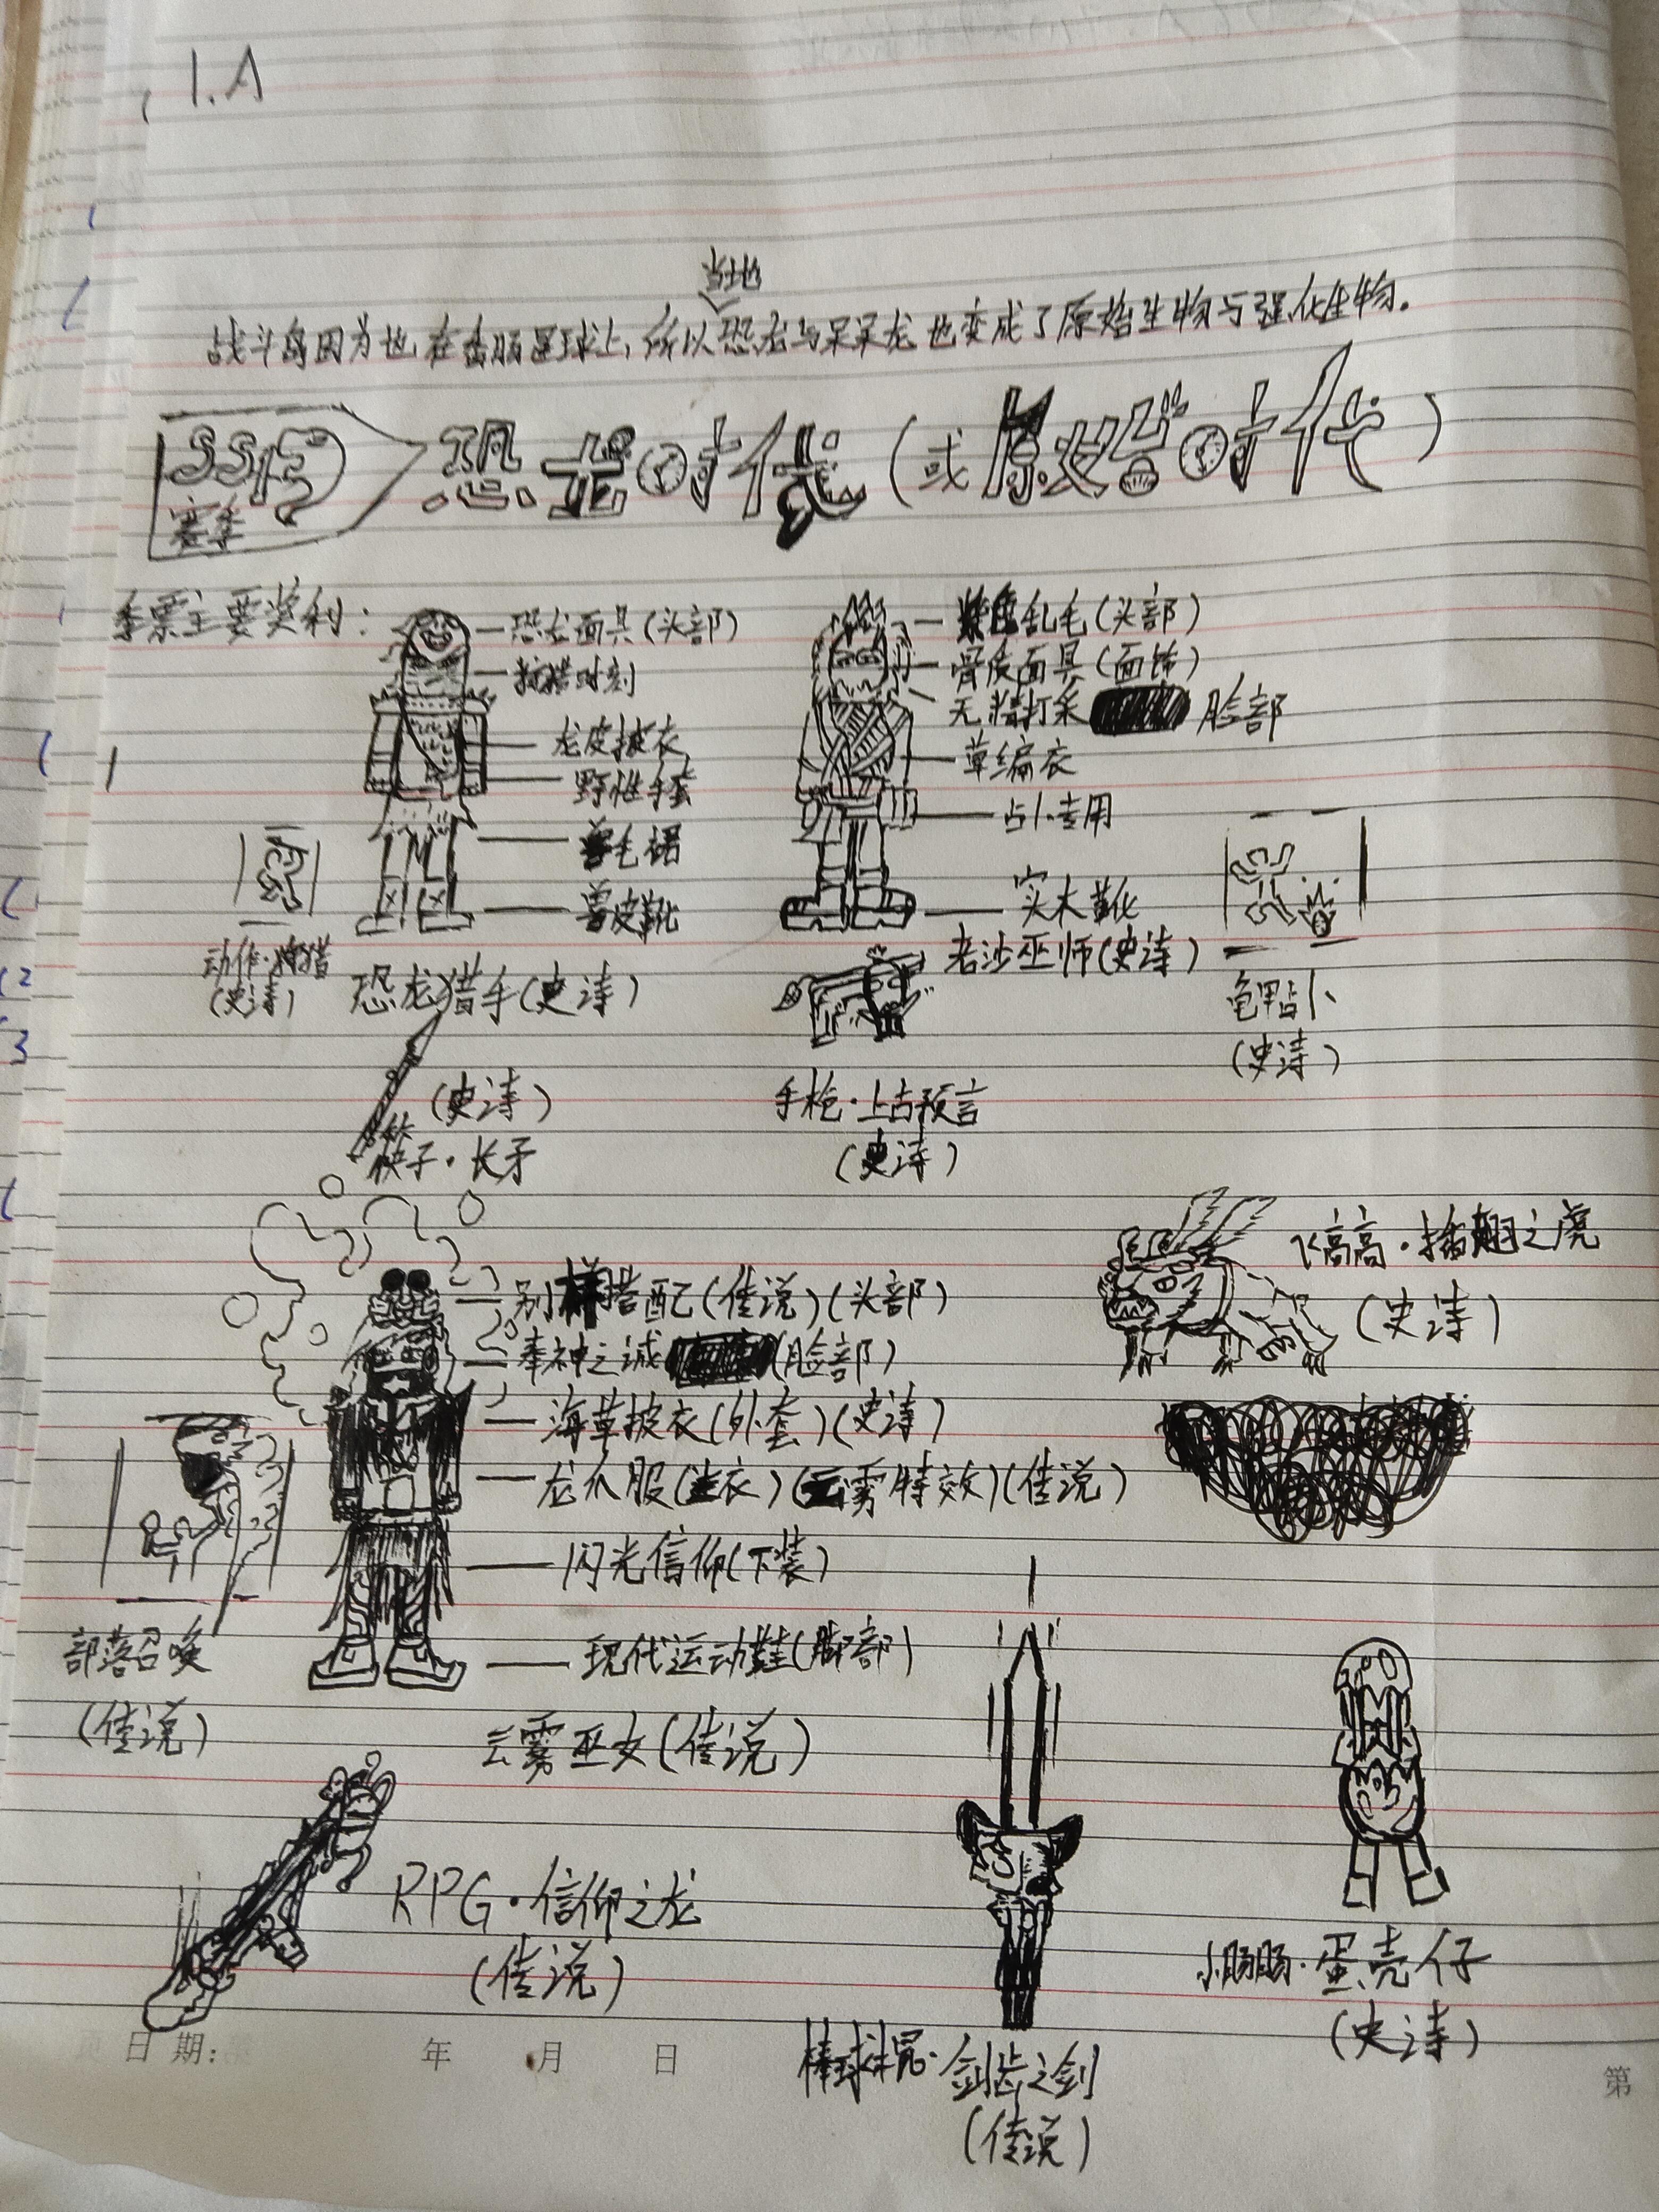 1.A
战斗岛因为也在香肠星球上,所以当地恐龙与呆呆龙也变成了原始生物与强化生物。
恐龙时代(或原始时代)
赛季
季票主要奖利:
恐龙面具(头部)
狩猎时刻
龙皮披衣
野性手套
兽毛裙
兽皮靴
动作·狩猎
(史诗)
恐龙猎手(史诗)
乱毛(头部)
骨皮面具(面饰)
无精打采 脸部
草编衣
占卜专用
实木靴
老沙巫师(史诗)
龟甲占卜
(史诗)
(史诗)
筷子·长矛
手枪·上古预言
(史诗)
飞高高·插翅之虎
(史诗)
别样搭配(传说)(头部)
奉神之诚(脸部)
海草披衣(外套)(史诗)
龙爪服(上衣)(云雾特效)(传说)
闪光信仰(下装)
现代运动鞋(脚部)
部落召唤
(传说)
云雾巫女(传说)
RPG·信仰之龙
(传说)
棒球棍·剑齿之剑
(传说)
小肠肠·蛋壳仔
(史诗)
日期: 年 月 日
第